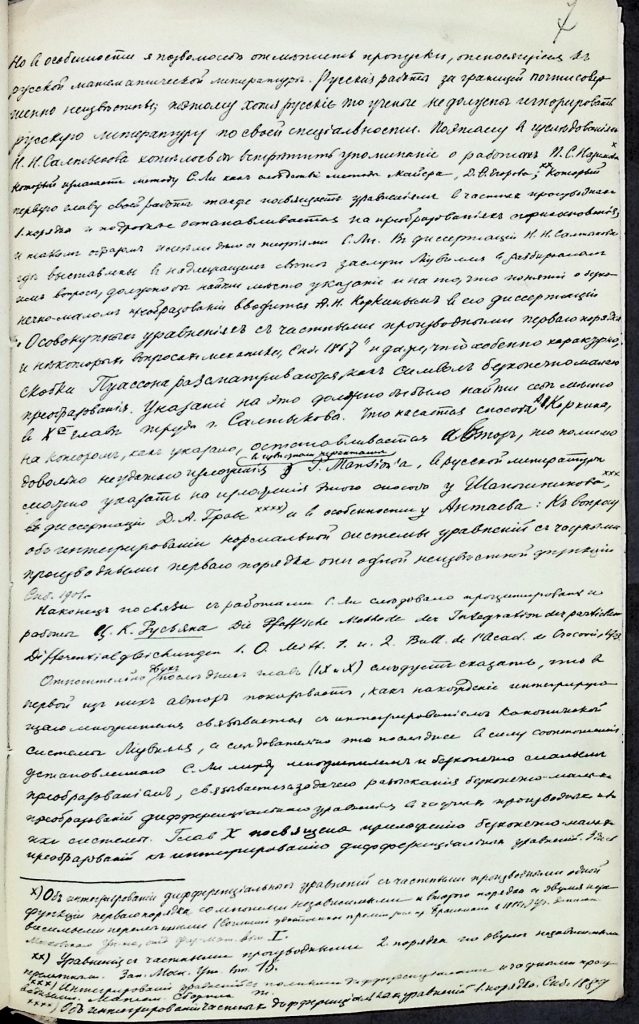 7
Но въ особенности я позволю себѣ отмѣтить пропуски, относящіеся къ
русской математической литературѣ. Русскія работы за границей почти совер-
шенно неизвѣстны; поэтому хотя русскіе то ученые не должны игнорировать
русскую литературу по своей спеціальности. Поэтому въ изслѣдованіи
Н. Н. Салтыкова хотѣлось бы встрѣтить упоминаніе о работахъ П. С. x)
который излагаетъ методу С. Ли какъ слѣдствіе метода Майера, Д. Егорова, xx) который
первую главу своей работы также посвящаетъ уравненіямъ въ частныхъ производныхъ
1. порядка и подробно останавливается на преобразованіяхъ прикосновенія
и такимъ образомъ имѣетъ дѣло съ теоріями С. Ли. Въ диссертаціи Н. Н. Салтыкова
гдѣ выставлены въ надлежащемъ свѣтѣ заслуги Ліувилля въ разбираемомъ
имъ вопросѣ, должно бы найти мѣсто указаніе и на то, что понятіе о безко-
нечно-маломъ преобразованіи вводится А. Н. Коркинымъ въ его диссертаціи
"О совокупныхъ уравненіяхъ съ частными производными перваго порядка
и нѣкоторыхъ вопросахъ механики, Спб. 1867" и даже, что особенно характерно,
скобки Пуассона разсматриваются какъ символъ безконечно-малаго
преобразованія. Указаніе на это должно бы было найти себѣ мѣсто
въ X-й главѣ труда г. Салтыкова. Что касается способа А. Коркина,
на которомъ, какъ указано, останавливается авторъ, то помимо
довольно неудачнаго изложенія у Mansion'a, въ русской литературѣ
можно указать на изложенія этого способа у Шапошникова, xxx)
въ диссертаціи Д. А. Граве xxxx) и въ особенности у Антаева: Къ вопросу
объ интегрированіи нормальной системы уравненій съ частными
производными перваго порядка отъ одной неизвѣстной функціи
Спб. 1901.
Наконецъ по связи съ работами С. Ли слѣдовало процитировать и
работы Ц. К. Русьяна Die Pfaff'sche Methode der Integration der partiellen
Differentialgleichungen 1. O. Mitt. 1. u. 2. Bull. de l'Acad. de Cracovie
Относительно двухъ послѣднихъ главъ (IX и X) слѣдуетъ сказать, что въ
первой изъ нихъ авторъ показываетъ, какъ нахожденіе интегрирую-
щаго множителя связывается съ интегрированіемъ канонической
системы Ліувилля, а слѣдовательно это послѣднее въ силу соотношенія
установленнаго С. Ли между множителемъ и безконечно малымъ
преобразованіемъ, связывается съ задачею разысканія безконечно-малыхъ
преобразованій дифференціальнаго уравненія въ частныхъ производныхъ или
ихъ системы. Глава X посвящена приложенію безконечно-малыхъ
преобразованій къ интегрированію дифференціальныхъ уравненій. Здѣсь
x) Объ интегрированіи дифференціальныхъ уравненій съ частными производными одной
функціи перваго порядка со многими независимыми и второго порядка съ двумя неза-
висимыми перемѣнными
xx) Уравненія съ частными производными 2 порядка по двумъ независимымъ
перемѣннымъ. Зап. Моск. Ун. вып. 15.
xxx) Интегрированіе уравненій съ полными дифференціалами и съ частными произ-
водными. Матем. Сборникъ т.
xxxx) Объ интегрированіи частныхъ дифференціальныхъ уравненій 1. порядка. Спб.